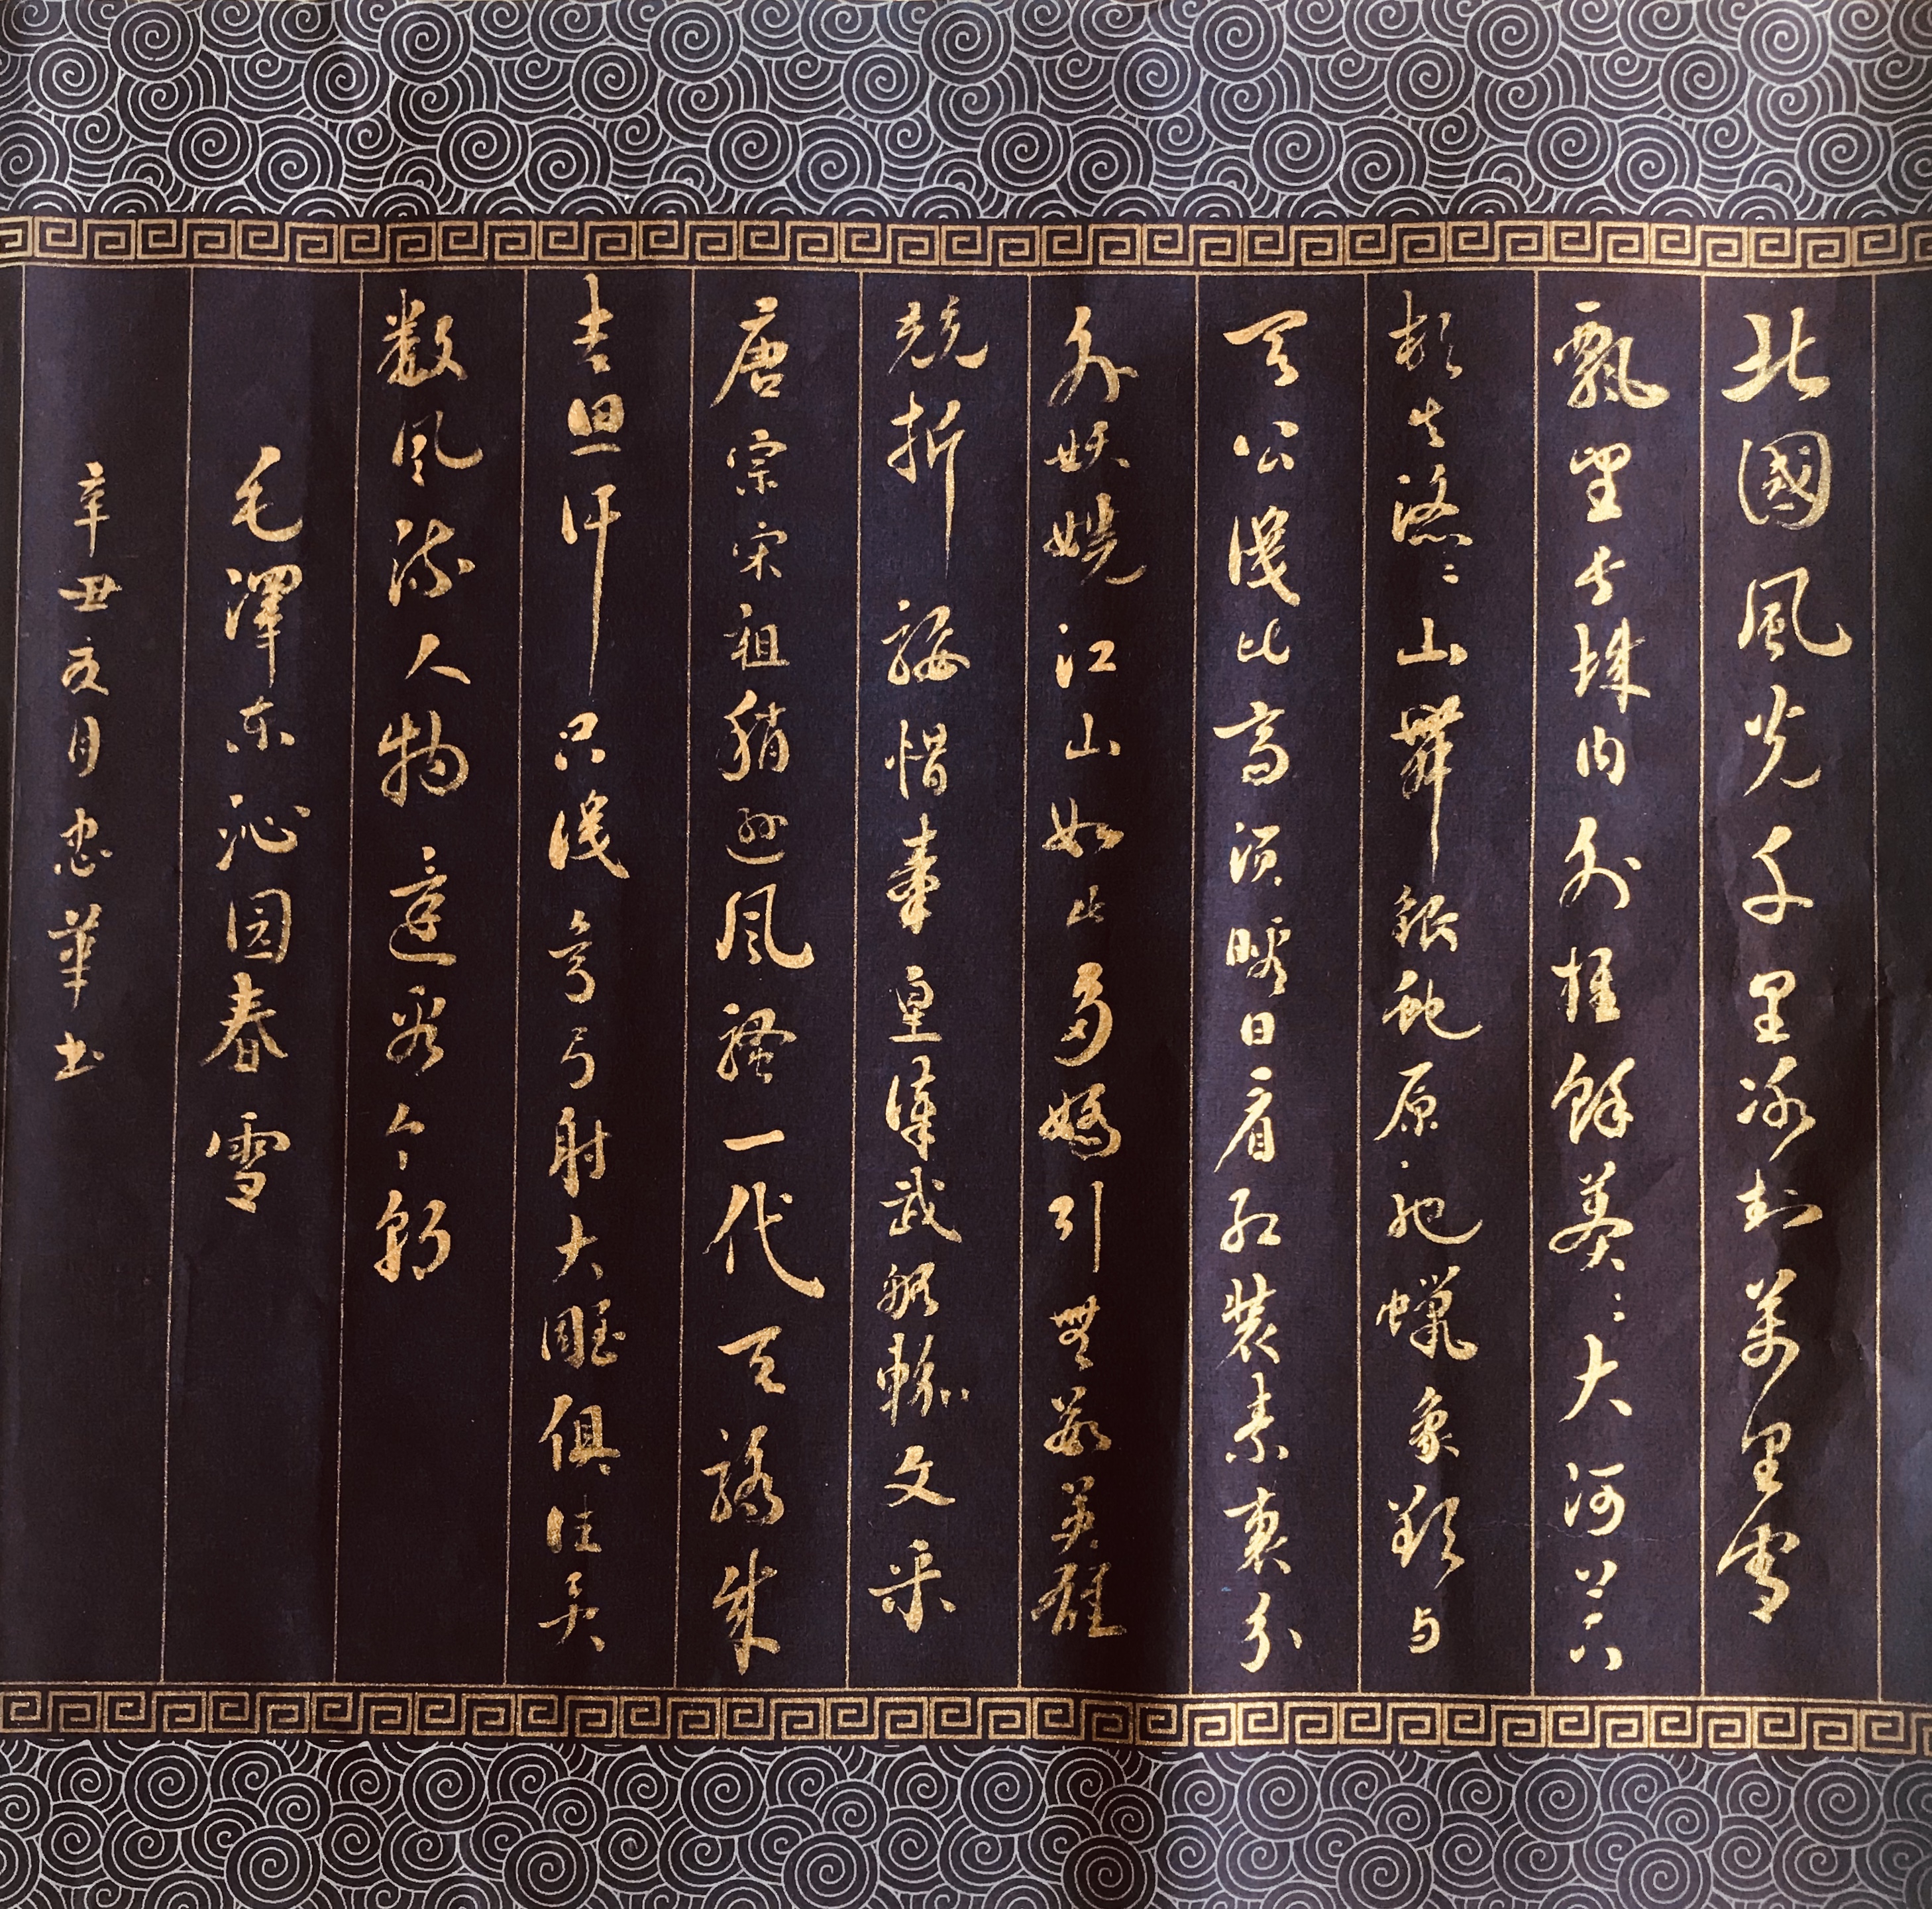 北國風光千里冰封萬里雪
飄望長城内外惟餘莽〻大河上下
頓失滔〻山舞銀蛇原馳蠟象欲与
天公試比高須晴日看红裝素裹分
外妖嬈江山如此多嬌引無數英雄
競折腰惜秦皇漢武略輸文采
唐宗宋祖稍遜风騷一代天驕成
吉思汗只識彎弓射大雕俱往矣
數风流人物還看今朝
毛澤东沁园春雪
辛丑夏月忠華书